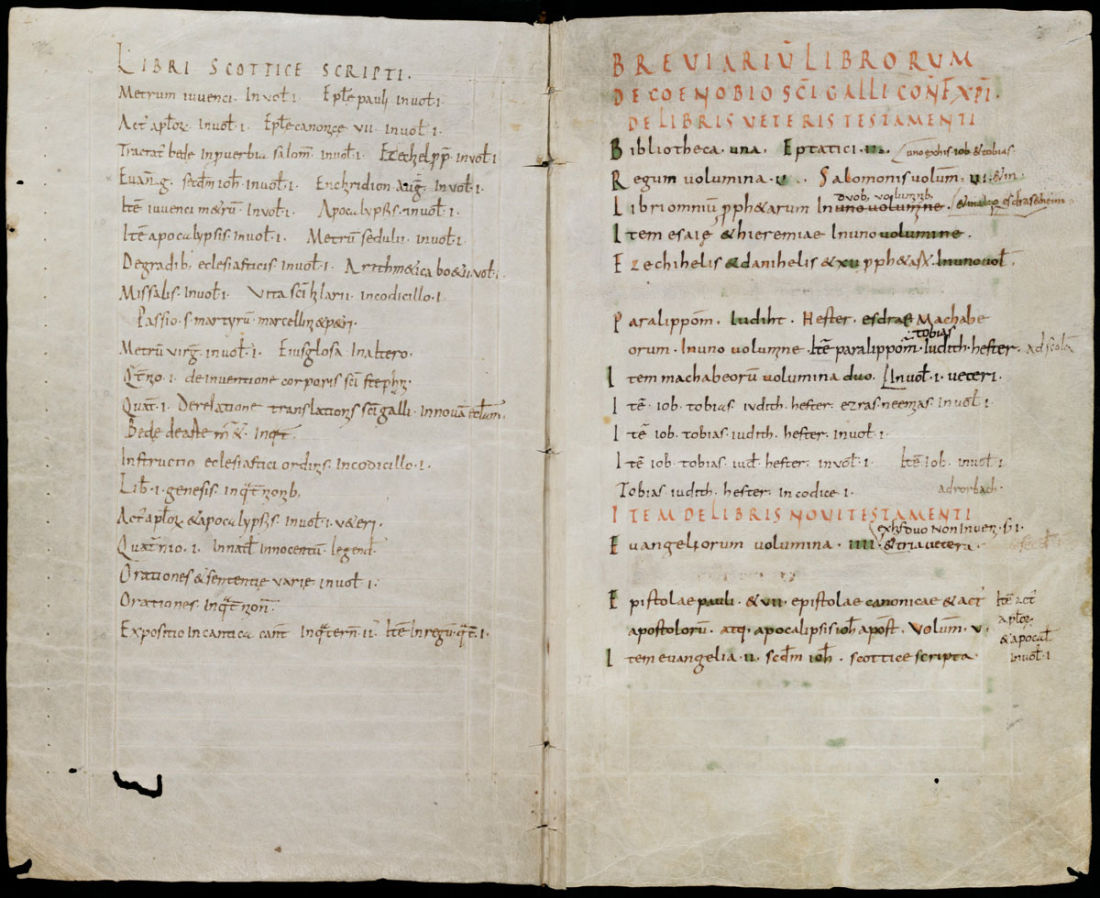 LIBRI SCOTTICE SCRIPTI.
Metrum iuvenci. In vol̄. i. Ep̄le pauli in vol̄. i.
Act̄ ap̄lor̄ in vol̄. i. Ep̄le canonicę vii. in vol̄. i.
Tractat̄ bede in proverbia salom̄ in vol̄. i. Ezechiel pp̄. in vol̄ i
Evang. sēcdm ioh̄. in vol̄. i. Enchiridion auḡ. in vol̄. i.
Itē iuvenci metrū. In vol̄. i. Apocalypsis. in vol̄. i.
Itē apocalypsis. in vol̄. i. Metrū sedulii. in vol̄. i.
De gradib; eclesiasticis. in vol̄. i. Arithm&ica bo&ii vol̄. i.
Missalis. in vol̄. i. Vita sc̄i hilarii. in codicillo. i.
Passio. s. martyrū marcellini & p&ri.
Metrū virḡ. in vol̄. i. Eius glosa. In altero.
Qt̄nio. i. de inventione corporis sc̄i stephani.
Quat̄. i. De relatione translationis sc̄i galli in novā ecl̄am.
Bede de arte m̄&. In qt̄.
Instructio eclesiastici ordinis. in codicillo. i.
Lib̄. i. genesis. in qt̄nionib.
Act̄ ap̄lor̄ & apocalypsis. in vol̄. i. v&eri.
Quat̄nio. i. In nat̄al̄ innocentū legend̄.
Orationes & sententię varię in vol̄. i.
Orationes. In qt̄nion̄.
Expositio in cantica cant̄ In qt̄ern̄. ii. Itē In regū qt̄. i.
BREVIARIŪ LIBRORUM
DE COENOBIO SC̄I GALLI CON̄F X̄PI.
DE LIBRIS VETERIS TESTAMENTI
Bibliotheca. una. Eptatici. iii. uno ex his iob & tobias
Regum volumina. ii. Salomonis volum̄. iii. & iii.
duob; voluminib;
Libri omniū pph&arum In uno volumine.
Item esaię & hieremiae In uno volumine.
Ezechihelis & danihelis & xii pph&ar̄. In uno vol̄.
Paralippom̄. Iudiht. Hester. esdrae Machabe
tobias
orum. In uno volumine. Itē paralippom̄. Iudith. hester. ad scolā
Item machabeorū volumina duo. In vol̄. i. veteri.
Itē. iob. tobias. iudith. hester. ezras. neemias. in vol̄. i.
Itē iob. tobias. iudith. hester. in vol̄. i.
Itē iob. tobias. iud̄. hester. in vol̄. i. Itē Iob. in vol̄. i
Tobias. iudith. hester. in codice i. ad rorbach.
ITEM DE LIBRIS NOVI TESTAMENTI
ex his duo non inven̄. s̄. i.
Evangeliorum volumina. iiii. & tria vetera.
Epistolae pauli. & vii. epistolae canonicae & act̄
apostolorū. atq; apocalipsis ioh̄ apost̄. Volum̄. v.
Item evangelia. ii. sēcdm ioh̄. scottice scripta.
Itē act̄
ap̄lor̄
& apocal̄
in vol̄. i